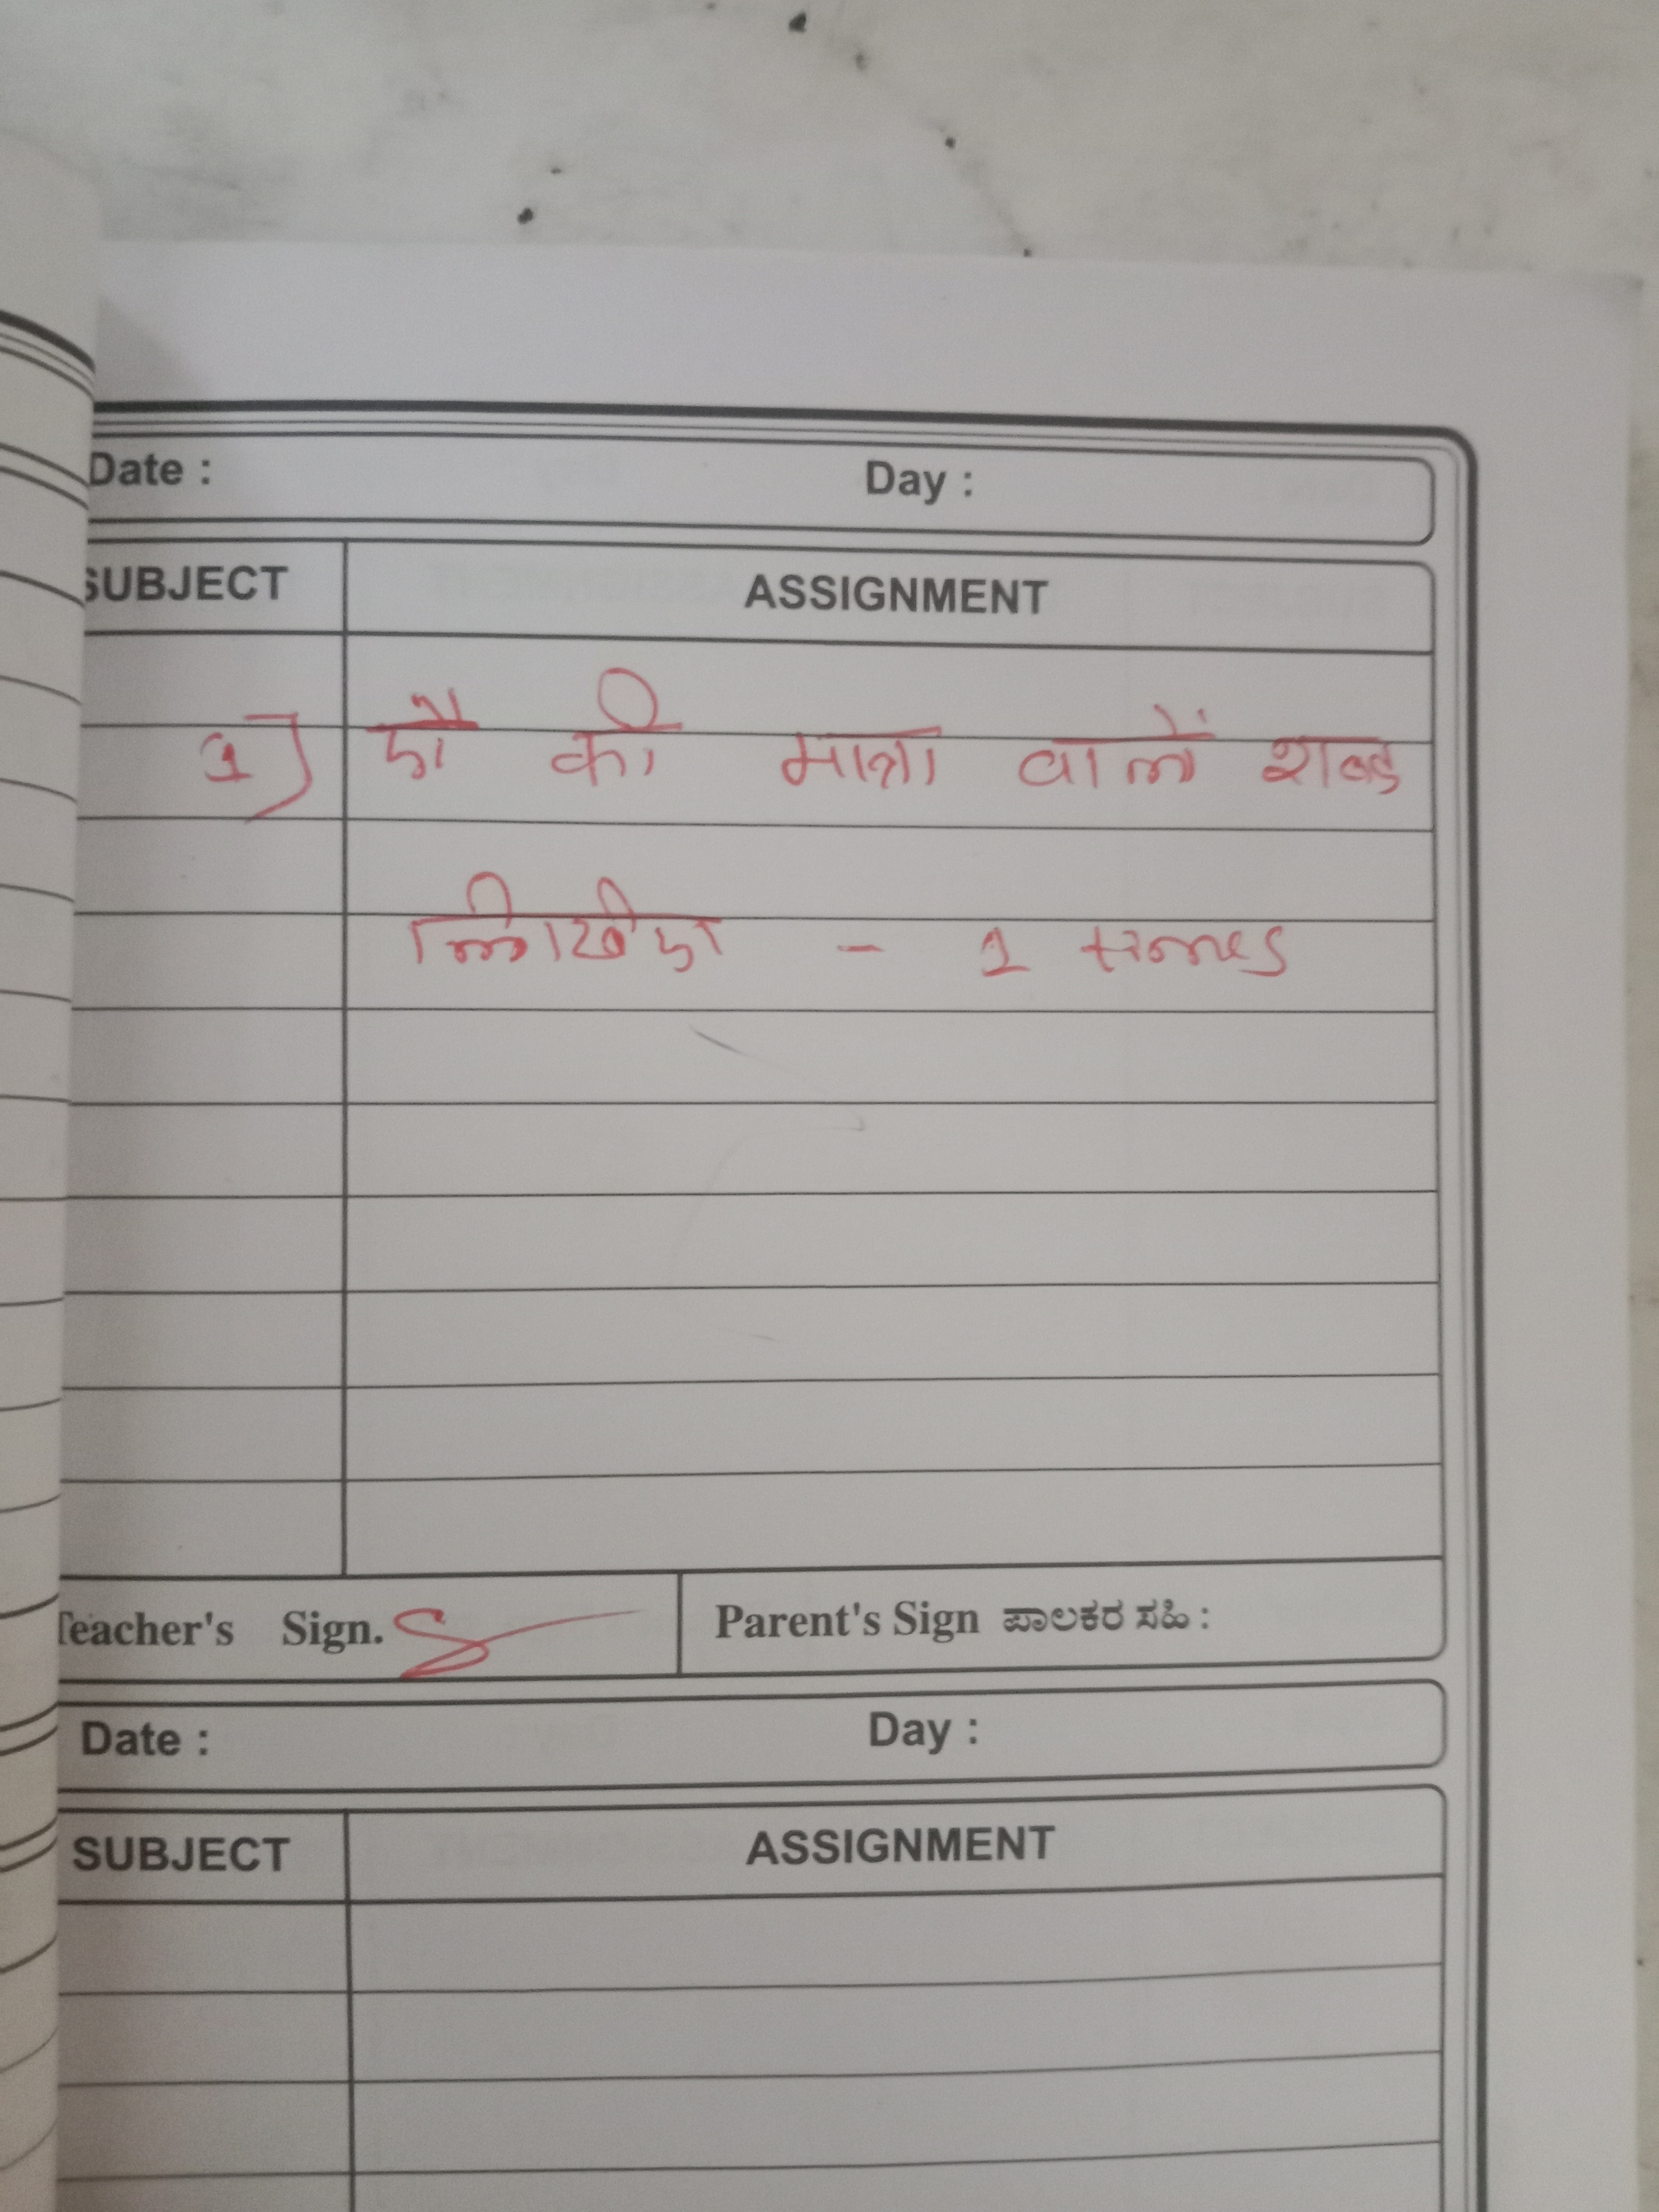 Date : Day :
SUBJECT ASSIGNMENT
1) की मात्रा वाले शब्द
लिखीए - 1 times
Teacher's Sign. Parent's Sign ಪಾಲಕರ ಸಹಿ :
Date : Day :
SUBJECT ASSIGNMENT